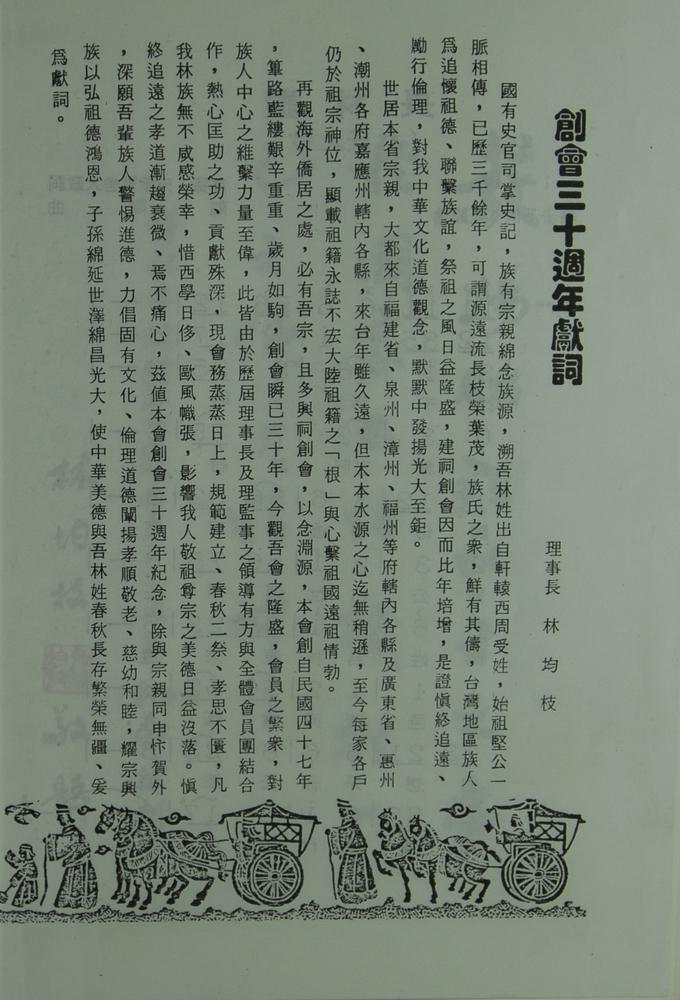 創會三十週年獻詞
理事長 林均枝
國有史官司掌史記，族有宗親綿念族源，溯吾林姓出自軒轅西周受姓，始祖堅公一
脈相傳，已歷三千餘年，可謂源遠流長枝榮葉茂，族氏之衆，鮮有其儔，台灣地區族人
爲追懷祖德、聯繫族誼，祭祖之風日益隆盛，建祠創會因而比年培增，是證愼終追遠、
勵行倫理，對我中華文化道德觀念，默默中發揚光大至鉅。
世居本省宗親，大都來自福建省、泉州、漳州、福州等府轄內各縣及廣東省、惠州
、潮州各府嘉應州轄內各縣，來台年雖久遠，但木本水源之心迄無稍遜，至今每家各戶
仍於祖宗神位，顯載祖籍永誌不宏大陸祖籍之「根」與心繫祖國遠祖情勃。
再觀海外僑居之處，必有吾宗，且多興祠創會，以念淵源，本會創自民國四十七年
，篳路藍縷艱辛重重、歲月如駒，創會瞬已三十年，今觀吾會之隆盛，會員之繁衆，對
族人中心之維繫力量至偉，此皆由於歷屆理事長及理監事之領導有方與全體會員團結合
作，熱心匡助之功、貢獻殊深，現會務蒸蒸日上，規範建立、春秋二祭、孝思不匱，凡
我林族無不咸感榮幸，惜西學日侈、歐風幟張，影響我人敬祖尊宗之美德日益沒落。愼
終追遠之孝道漸趨衰微、焉不痛心，茲値本會創會三十週年紀念，除與宗親同申忭賀外
，深願吾輩族人警惕進德，力倡固有文化、倫理道德闡揚孝順敬老、慈幼和睦，耀宗興
族以弘祖德鴻恩，子孫綿延世澤綿昌光大，使中華美德與吾林姓春秋長存繁榮無疆、爰
爲獻詞。